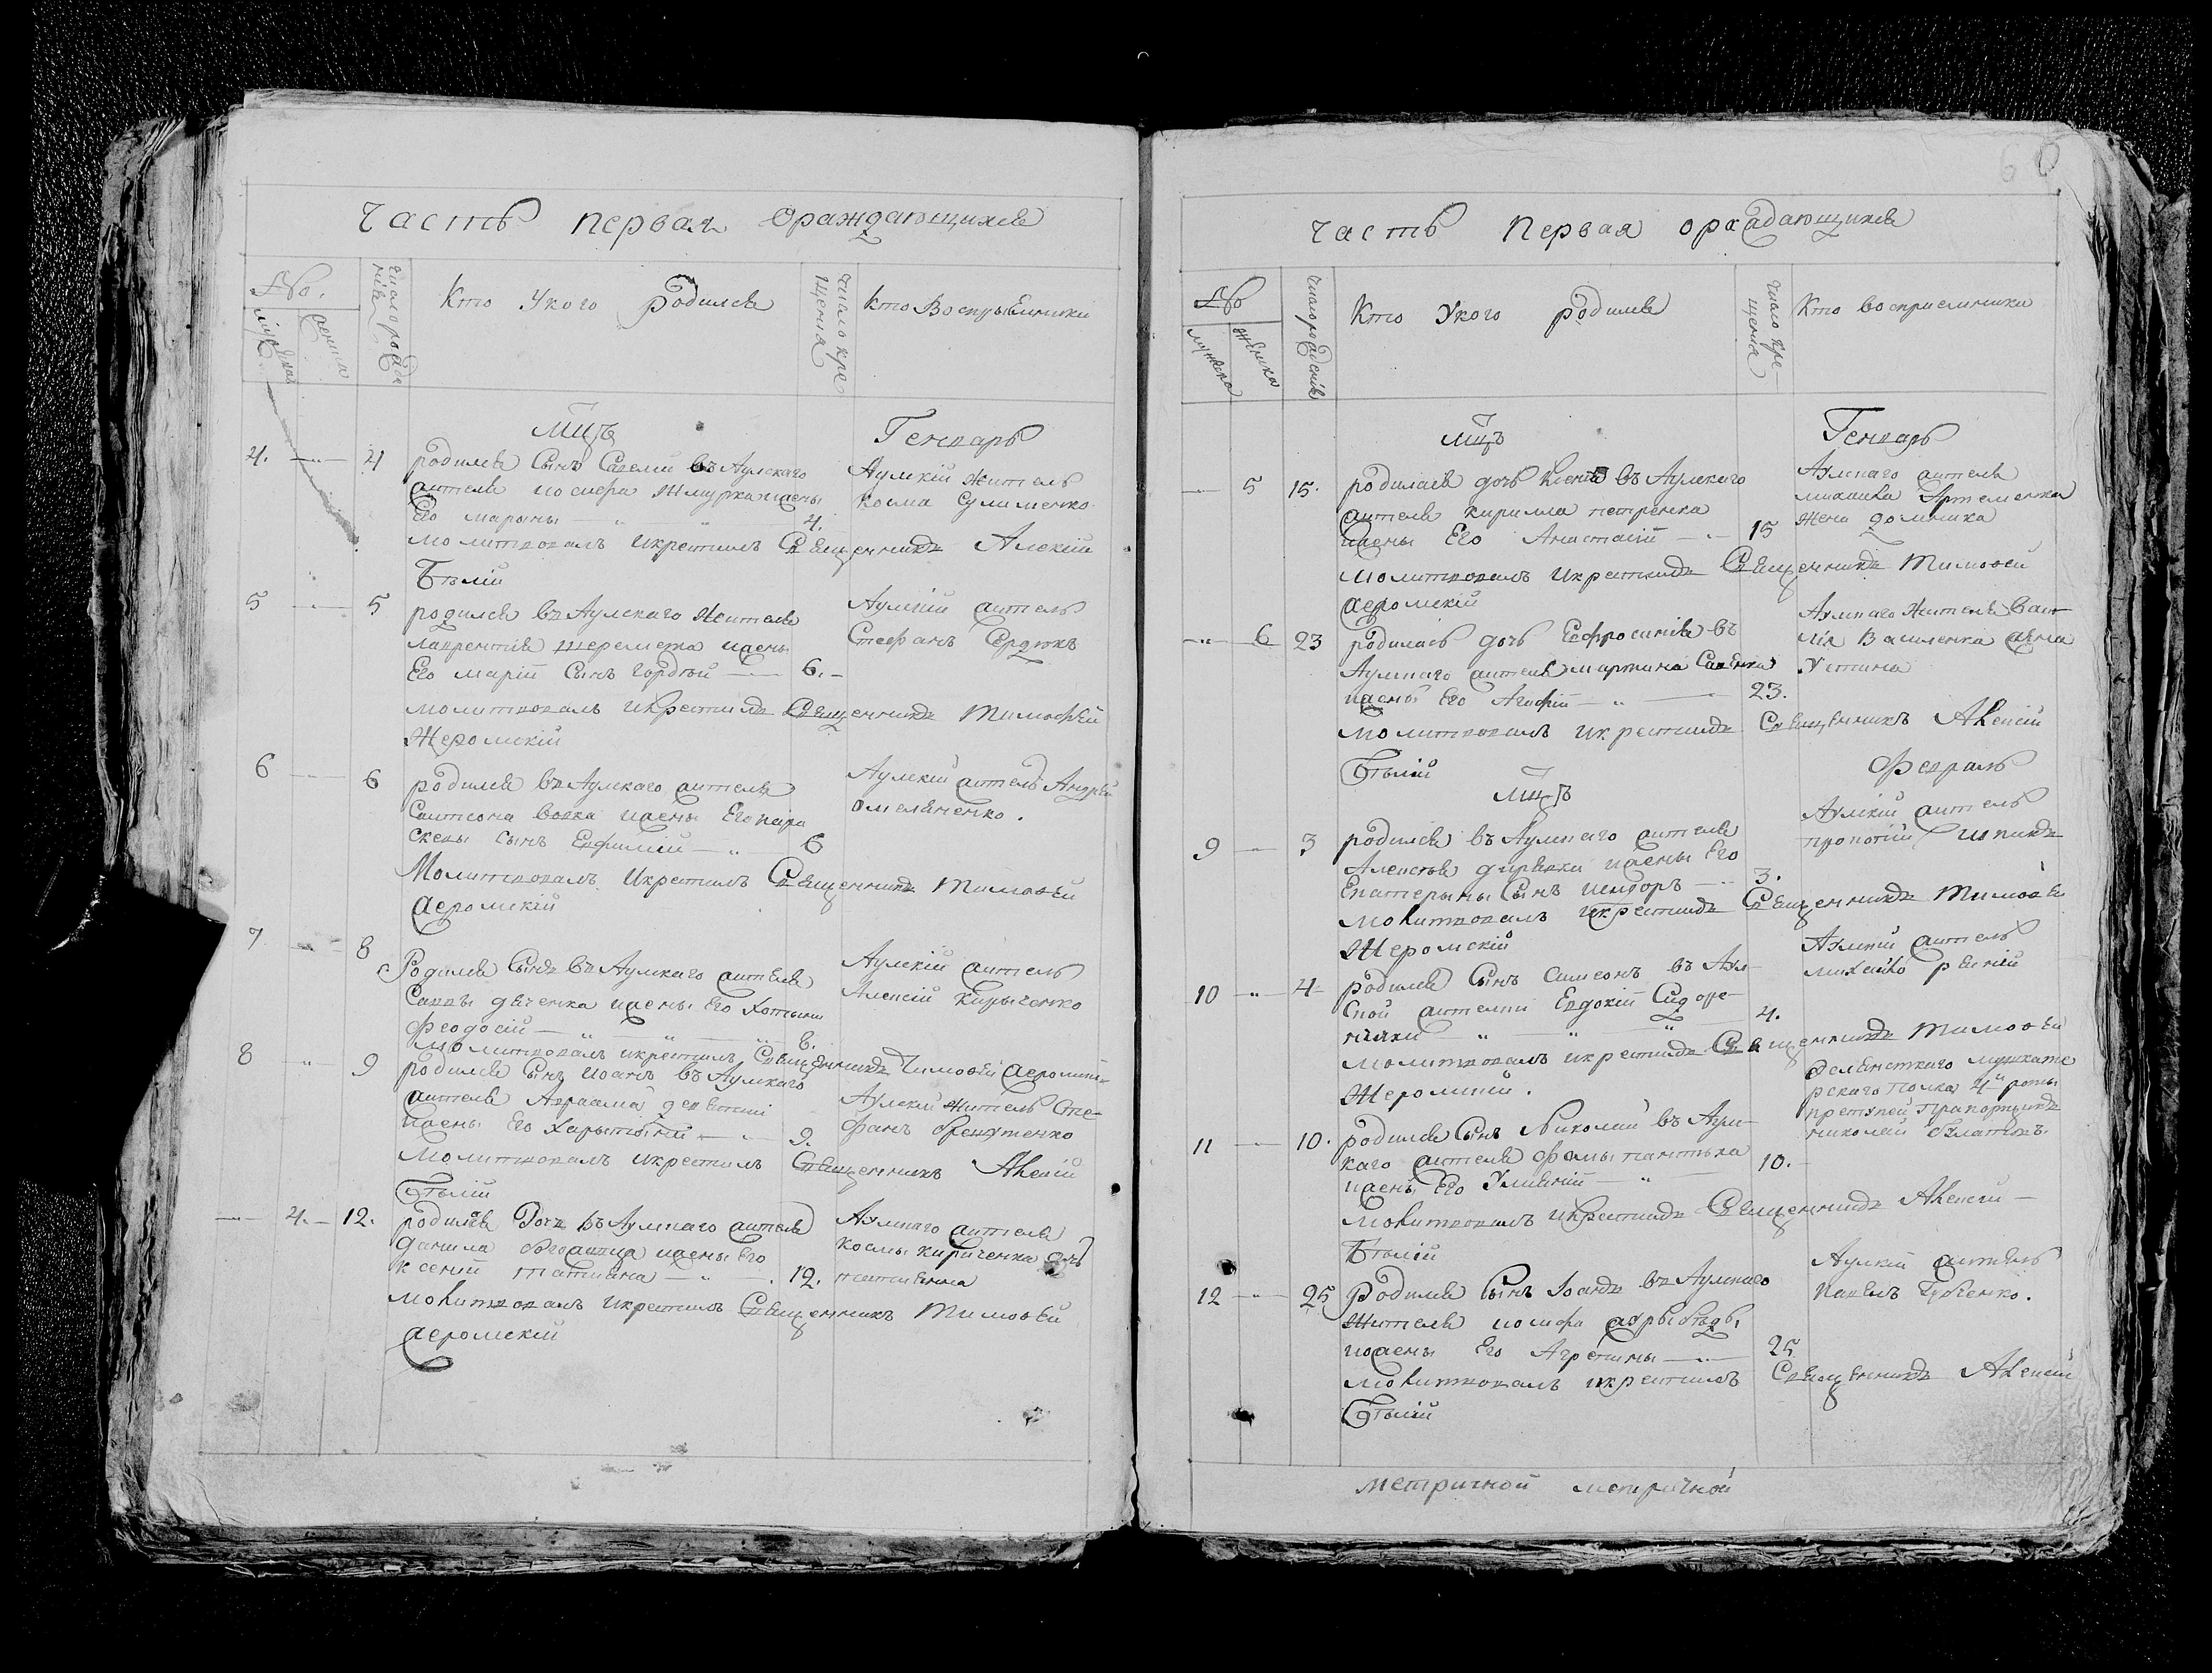 Часть первая ораждающихся
№.
мужеска
женска
число рожде
нія
Кто Укого родился
число кре
щения
кто Восприемники
мцъ Генварь
4. 4 родился Сынъ Савелій въ Аулскаго
жителя иосифа Жмурка ижены
Его марины 4.
Аулкій житель
косма Сулименко
молитвовалъ икрестилъ Священникъ Алексій
Бѣлій
5 5 родился въ Аулскаго жителя
лаврентія шеремета ижены
Его маріи Сынъ гордѣй 6.
Аулкій житель
Стефанъ Сердюкъ
молитвовалъ икрестилъ Священникъ Тимофѣй
Жеромскій
6 6 родился въ Аулскаго жителя
Самсона вовка ижены Его пара
скевы сынъ Евфимій 6
Аулскій житель Андрей
омеляненко.
Молитвовалъ икрестилъ Священникъ Тимоѳей
Жеромскій
7 8 Родился Сынъ въ Аулскаго жителя
Саввы дяченка ижены Его
феодосій 8.
Аулскій житель
Алексій Кириченко
молитвовалъ икрестилъ Священникъ Тимоѳей
8 9 родился Сынъ иоанъ въ Аулскаго
жителя Авраама
ижены Его Харытыни 9.
Аулскій житель Сте-
фанъ
молитвовалъ икрестилъ Священникъ Алексій
Бѣлій
4. 12. родилась Дочь въ Аулскаго жителя
данила ижены Его
ксеніи татиана 12.
Аулскаго жителя
космы кириченка дочь
татиянна
молитвовалъ икрестилъ Священникъ Тимоѳей
жеромскій
часть первая орождающихся
№
мужеска
женска
число рожденія
Кто Укого родился
число кре-
щения
Кто восприемники
мцъ Генварь
5 15. родилась дочь ксенія въ Аулскаго
жителя кирилла петренка
ижены Его Анастасіи 15
Аулскаго жителя
михаила Артеменка
жена домника
молитвовалъ икрестилъ Священникъ Тимоѳей
жеромскій
6 23 родилась дочь Евфросинія въ
Аулскаго жителя мартина Савенка
ижены Его Агафіи 23.
Аулскаго жителя
Василенка жена
Устина
молитвовалъ икрестилъ Священникъ Алексій
Бѣлій
мцъ Февраль
9 3 родился въ Аулскаго жителя
Алексѣя ижены Его
Екатерыны Сынъ исидоръ 3.
Аулскій житель
прокопій шпикъ
молитвовалъ икрестилъ Священникъ Тимоѳей
Жеромскій
10 4 родился Сынъ симеонъ въ Аул-
ской жителки Евдокіи Сидоре-
нчихи 4.
Аулскій житель
михайло
молитвовалъ икрестилъ Священникъ Тимоѳей
Жеромскій.
11 10. родился Сынъ Николай въ Аулс-
каго жителя Фомы
ижены Его Улияніи 10.
мушкате
рскаго полка 4й роты
прапорщикъ
николай
молитвовалъ икрестилъ Священникъ Алексій
Бѣлій
12 25 Родился Сынъ Іоанъ въ Аулскаго
жителя иосифа
ижены Его Агрепины 25
Аулкій житель
павелъ Губенко.
молитвовалъ икрестилъ Священникъ Алексій
Бѣлій
метричной метричной